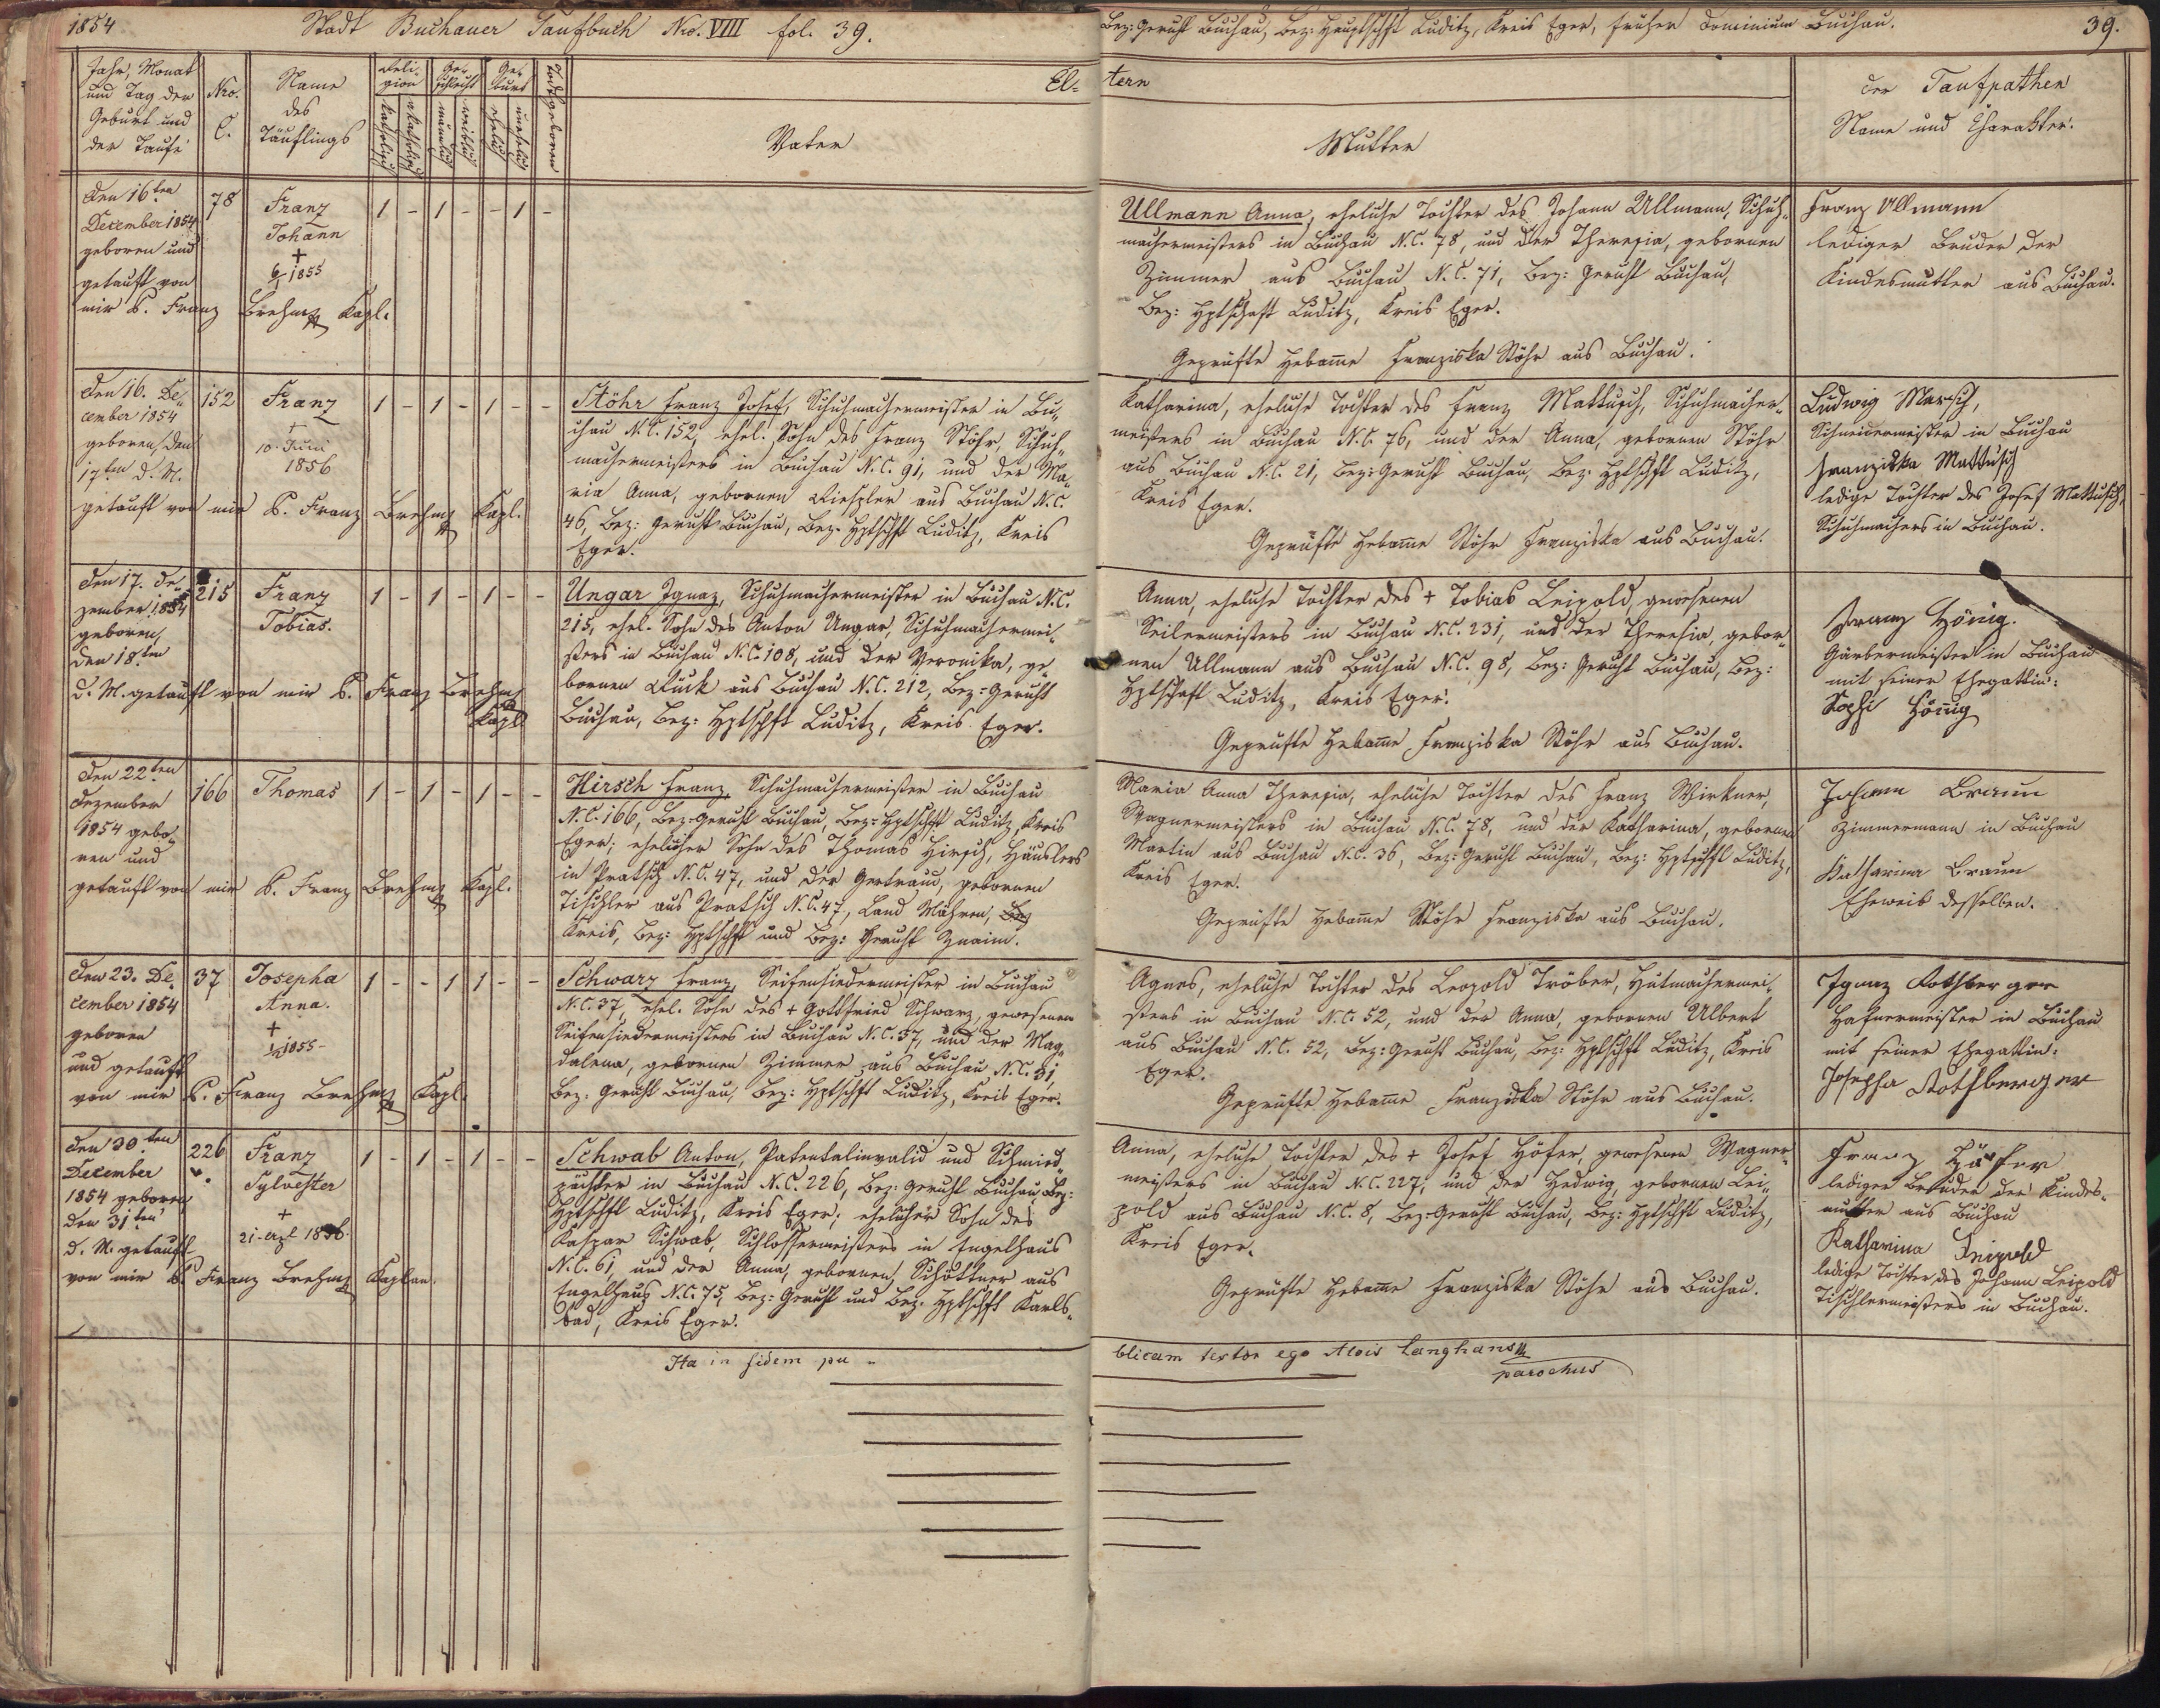 1854 Stadt Buchauer Taufbuch Nro. VIII fol. 39.
Bez: Gericht Buchau, Bez: Hauptschft Luditz, Kreis Eger, früher Dominium Buchau. 39.
Jahr, Monat
und Tag der
Geburt und
der Taufe
Nro.
C.
Name
des
Täuflings
Reli-
gion
katholisch
akatholisch
Ge-
schlecht
männlich
weiblich
Ge-
burt
ehelich
unehelich
todtgeboren
El-
Vater
tern
Mutter
der Taufpathen
Name und Charakter.
Den 16ten
December 1854
geboren und
getauft von
mir P. Franz Brehm Kapl.
78
Franz
Johann
+
6/1 1855
1 - 1 - - 1 -
Ullmann Anna, eheliche Tochter des Johann Ullmann, Schuh-
machermeisters in Buchau N.C. 78, und der Theresia, gebornen
Zimmer aus Buchau N.C. 71, Bez: Gericht Buchau,
Bez: Hptschaft Luditz, Kreis Eger.
Geprüfte Hebamme Franziska Stöhr aus Buchau.
Franz Ullmann
lediger Bruder der
Kindesmutter aus Buchau.
Den 16. De-
cember 1854
geboren, den
17ten d. M.
getauft von mir P. Franz Brehm Kapl.
152
Franz
+
10. Juni
1856
1 - 1 - 1 - -
Stöhr Franz Josef, Schuhmachermeister in Bu-
chau N.C. 152, ehel. Sohn des Franz Stöhr, Schuh-
machermeisters in Buchau N.C. 91, und der Ma-
ria Anna, gebornen aus Buchau N.C.
46, Bez: Gericht Buchau, Bez: Hptschft Luditz, Kreis
Eger.
Katharina, eheliche Tochter des Franz Mattusch, Schuhmacher-
meisters in Buchau N.C. 76, und der Anna, gebornen Stöhr
aus Buchau N.C. 21, Bez: Gericht Buchau, Bez: Hptschft Luditz,
Kreis Eger.
Geprüfte Hebamme Stöhr Franziska aus Buchau.
Ludwig Marsch,
Schneidermeister in Buchau
Franziska Mattusch
ledige Tochter des Josef Mattusch,
Schuhmachers in Buchau.
Den 17. De-
zember 1854
geboren,
den 18ten
d. M. getauft von mir P. Franz Brehm
Kapl
215
Franz
Tobias.
1 - 1 - 1 - -
Ungar Ignaz, Schuhmachermeister in Buchau N.C.
215, ehel. Sohn des Anton Ungar, Schuhmachermei-
sters in Buchau N.C. 108, und der Veronika, ge-
bornen Ruck aus Buchau N.C. 212, Bez: Gericht
Buchau, Bez: Hptschft Luditz, Kreis Eger.
Anna, eheliche Tochter des + Tobias Leipold, gewesenen
Seilermeisters in Buchau N.C. 231, und der Theresia, gebor-
nen Ullmann aus Buchau N.C. 98, Bez: Gericht Buchau, Bez:
Hptschaft Luditz, Kreis Eger.
Geprüfte Hebamme Franziska Stöhr aus Buchau.
Franz Hönig.
Gärbermeister in Buchau
mit seiner Ehegattin:
Sophi Hönig
Den 22ten
Dezember
1854 gebo-
ren und
getauft von mir P. Franz Brehm Kapl.
166
Thomas
1 - 1 - 1 - -
Hirsch Franz, Schuhmachermeister in Buchau
N.C. 166, Bez: Gericht Buchau, Bez: Hptschft Luditz, Kreis
Eger; ehelicher Sohn des Thomas Hirsch, Häuslers
in Pratsch N.C. 47, und der Gertraud, gebornen
Tischler aus Pratsch N.C. 47, Land Mähren, Bez
Kreis, Bez: Hptschft und Bez: Gericht Znaim.
Maria Anna Theresia, eheliche Tochter des Franz Wirkner,
Wagnermeisters in Buchau N.C. 78, und der Katharina, gebornen
Martin aus Buchau N.C. 36, Bez: Gericht Buchau, Bez: Hptschft Luditz,
Kreis Eger.
Geprüfte Hebamme Stöhr Franziska aus Buchau.
Johann Braun
Zimmermann in Buchau
Katharina Braun
Eheweib desselben.
Den 23. De-
cember 1854
geboren
und getauft
von mir P. Franz Brehm Kapl.
37
Josepha
Anna.
+
1855
1 - - 1 1 - -
Schwarz Franz, Seifensiedermeister in Buchau
N.C. 37, ehel. Sohn des + Gottfried Schwarz, gewesenen
Seifensiedermeisters in Buchau N.C. 37, und der Mag-
dalena, gebornen Zimmer aus Buchau N.C. 31,
Bez: Gericht Buchau, Bez: Hptschft Luditz, Kreis Eger.
Agnes, eheliche Tochter des Leopold Tröber, Hutmachermei-
sters in Buchau N.C. 52, und der Anna, gebornen Ulbert
aus Buchau N.C. 52, Bez: Gericht Buchau, Bez: Hptschft Luditz, Kreis
Eger.
Geprüfte Hebamme Franziska Stöhr aus Buchau.
Ignaz Rothberger
Hafnermeister in Buchau
mit seiner Ehegattin:
Josepha Rothberger
Den 30ten
December
1854 geboren
den 31ten
d. M. getauft
von mir P. Franz Brehm Kaplan.
226
Franz
Sylvester
+
21. 1856.
1 - 1 - 1 - -
Schwab Anton, Patentalinvalid und Schmied-
pächter in Buchau N.C. 226, Bez: Gericht Buchau, Bez:
Hptschft Luditz, Kreis Eger; ehelicher Sohn des
Kaspar Schwab, Schlossermeisters in Engelhaus
N.C. 61, und der Anna, gebornen Schöttner aus
Engelhaus N.C. 75, Bez: Gericht und Bez: Hptschft Karls-
bad, Kreis Eger.
Anna, eheliche Tochter des + Josef Höfer, gewesenen Wagner-
meisters in Buchau N.C. 227, und der Hedwig, gebornen Lei-
pold aus Buchau N.C. 8, Bez: Gericht Buchau, Bez: Hptschft Luditz,
Kreis Eger.
Geprüfte Hebamme Franziska Stöhr aus Buchau.
Franz Höfer
lediger Bruder der Kindes-
mutter aus Buchau
Katharina Leipold
ledige Tochter des Johann Leipold
Tischlermeisters in Buchau.
Ita in fidem pu-
blicam testor ego Alois Langhans
parochus